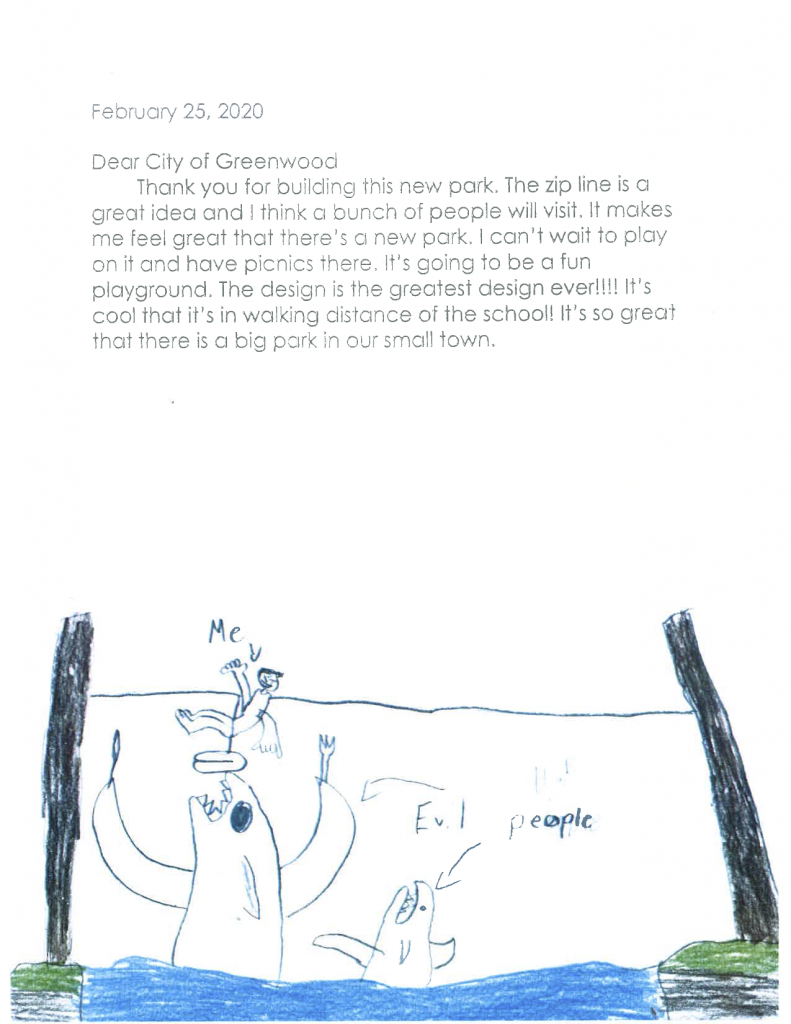 February 25, 2020
Dear City of Greenwood
Thank you for building this new park. The zip line is a
great idea and I think a bunch of people will visit. It makes
me feel great that there's a new park. I can't wait to play
on it and have picnics there. It's going to be a fun
playground. The design is the greatest design ever!!!! It's
cool that it's in walking distance of the school! It's so great
that there is a big park in our small town.
Me
Evil people